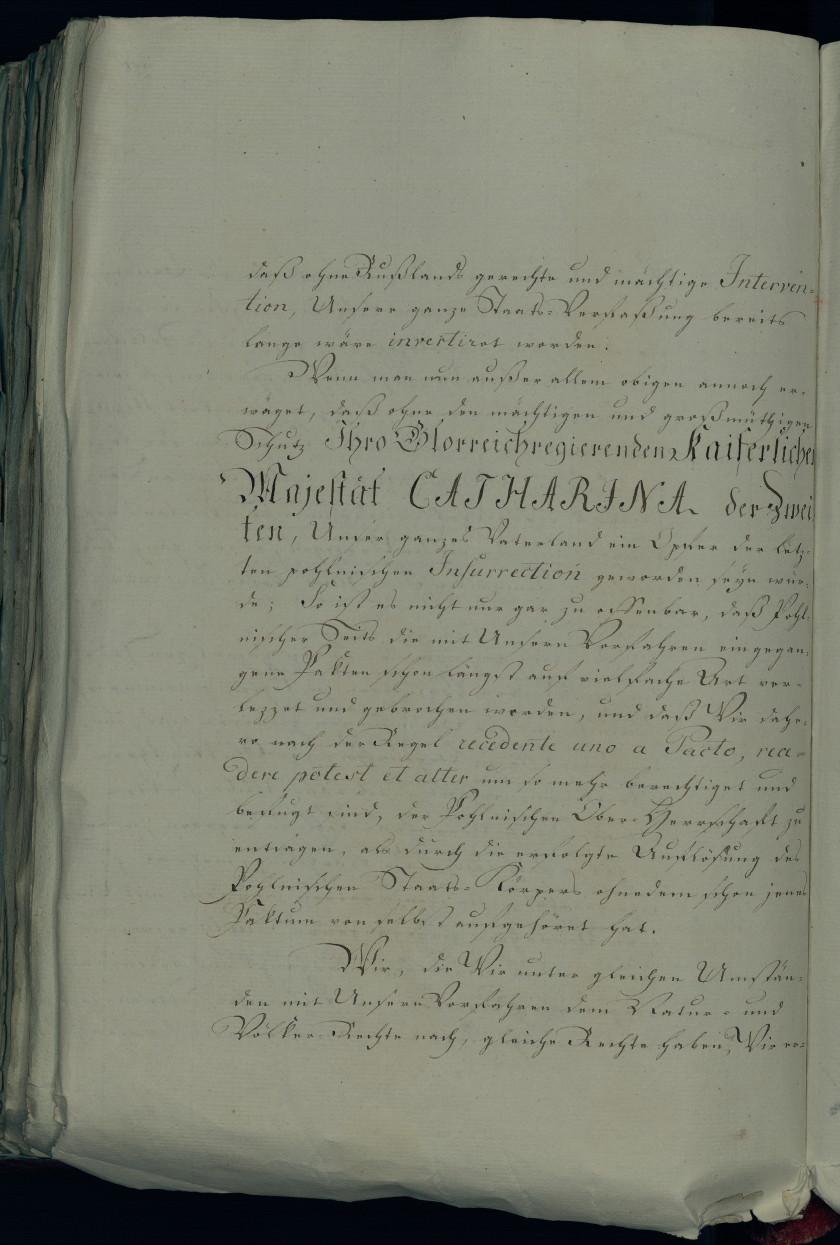 daß ohne Rußlands gerechte und mächtige Interven-
tion, Unsere ganze Staats-Verfaßung bereits
lange wäre invertiret worden.
Wenn man nun außer allem obigen annoch er-
wäget, daß ohne den mächtigen und großmüthigen
Schutz Ihro Glorreichregierenden Kaiserlichen
Majestät CATHARINA der Zwei
ten, Unser ganzes Vaterland ein Opfer der letz-
ten pohlnischen Insurrection geworden seyn wür-
de; So ist es nicht nur gar zu offenbar, daß Pohl-
nischer Seits die mit Unsern Vorfahren eingegan-
gene Pakten schon längst auf vielfache Art ver-
lezzet und gebrochen worden, und daß Wir dahe-
ro nach der Regel recedente uno a Pacto, rece-
dere potest et alter um so mehr berechtiget und
befugt sind, der Pohlnischen Ober-Herrschaft zu
entsagen, als durch die erfolgte Auflösung des
Pohlnischen Staats-Körpers ohnedem schon jenes
Paktum von selbst aufgehöret hat.
Wir, die Wir unter gleichen Umstän-
den mit Unsern Vorfahren dem Natur- und
Völker-Rechte nach, gleiche Rechte haben, Wir er-